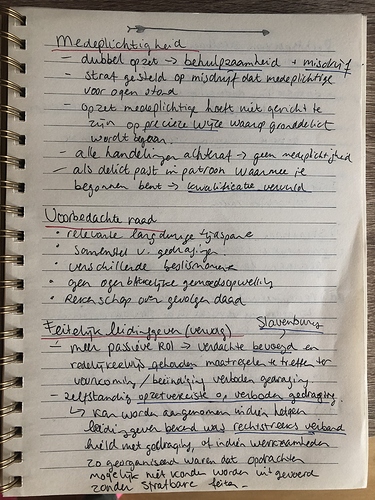 Medeplichtigheid
- dubbel opzet → behulpzaamheid + misdrijf
- straf gesteld op misdrijf dat medeplichtige
voor ogen stond
- opzet medeplichtige hoeft niet gericht te
zijn op precieze wijze waarop gronddelict
wordt begaan.
- alle handelingen achteraf → geen medeplichtigheid
- als delict past in patroon waarmee je
begonnen bent → kwalificatie vervuld
Voorbedachte raad
• relevante langdurige tijdspanne
• samenstel v. gedragingen
• verschillende beslismomenten
• geen ogenblikkelijke gemoedsopwelling
• Rekenschap over gevolgen daad
Feitelijk leidinggeven (vervolg) Slavenburg
- meer passieve rol → verdachte bevoegd en
redelijkerwijs gehouden maatregelen te treffen ter
voorkoming / beëindiging verboden gedraging
- zelfstandig opzetvereiste op verboden gedraging.
↳ kan worden aangenomen indien hetgeen
leidinggever bekend was rechtstreeks verband
hield met gedraging, of indien werkzaamheden
zo georganiseerd waren dat opdrachten
mogelijk niet konden worden uitgevoerd
zonder strafbare feiten